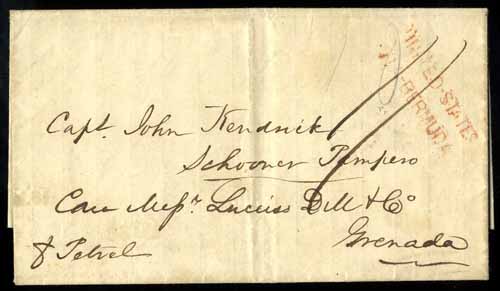 UNITED-STATES
BERMUDA
Capt. John Kendrick
Schooner Pampero
Care Messrs. Dill & Co
Grenada
Petrel